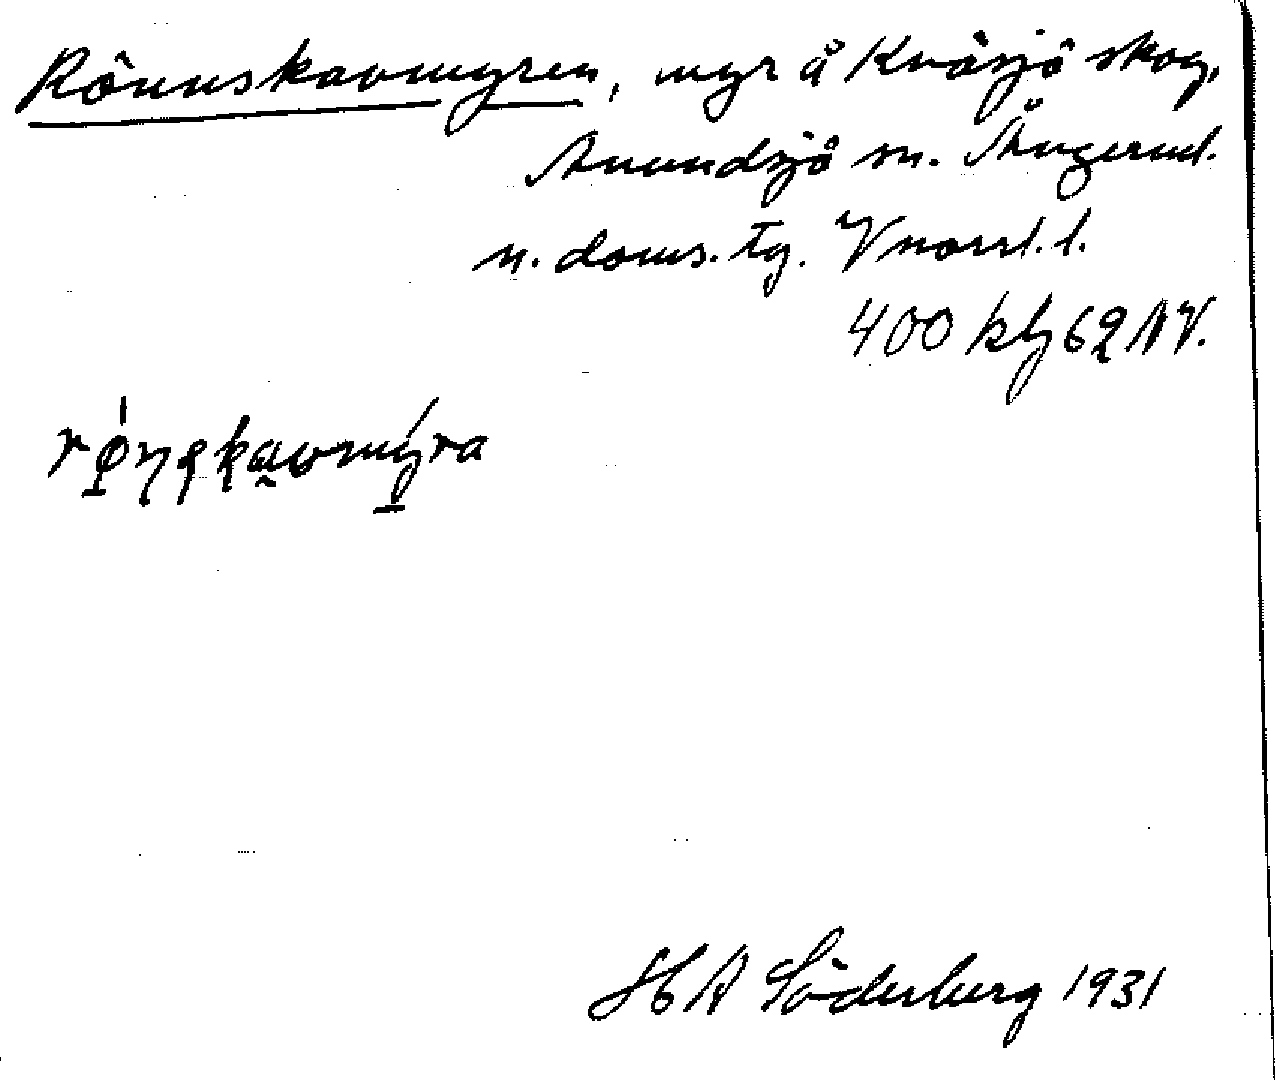 Rönnskavmyren, myr å Kvåsjö skog,
Anundsjö sn. Ångerml.
n. doms. tg. Vnorrl. l.
400 kbl 62 NV.
HA Söderberg 1931